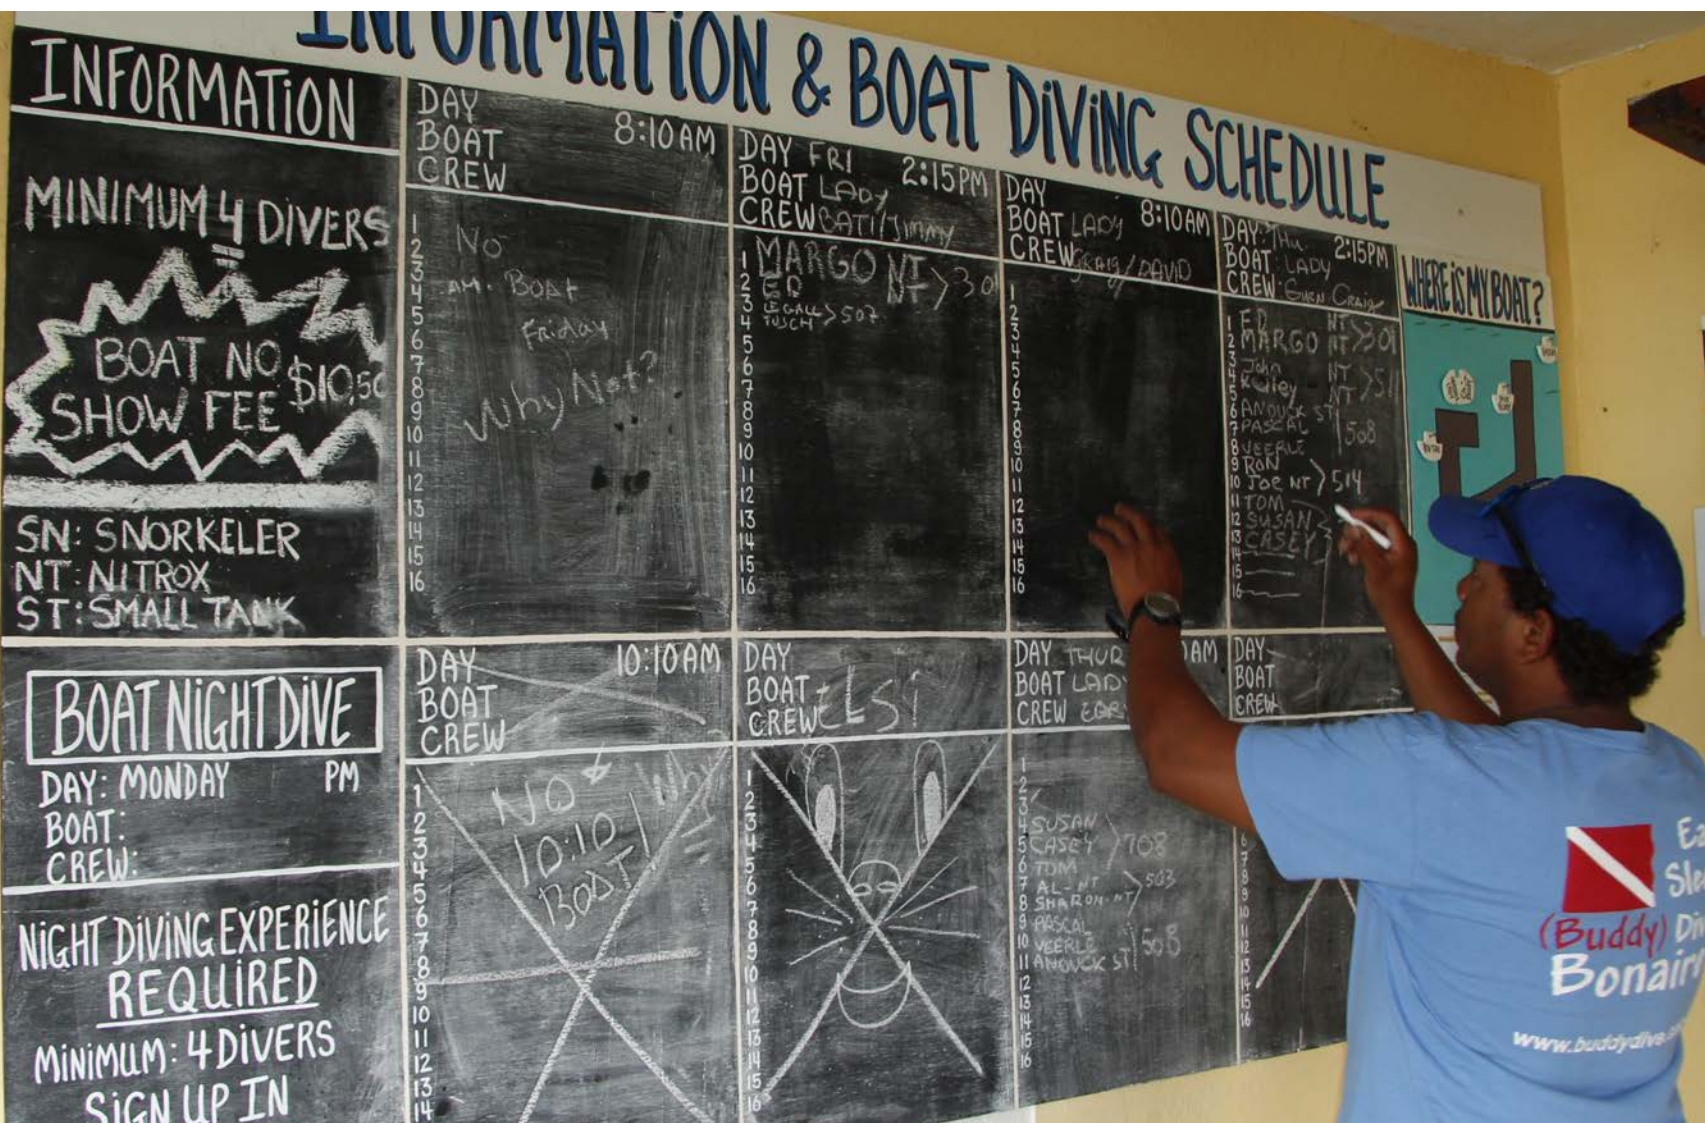 INFORMATION & BOAT DIVING SCHEDULE
INFORMATION
MINIMUM 4 DIVERS
BOAT NO
SHOW FEE $10,50
SN: SNORKELER
NT: NITROX
ST: SMALL TANK
BOAT NIGHT DIVE
DAY: MONDAY PM
BOAT:
CREW:
NIGHT DIVING EXPERIENCE
REQUIRED
MINIMUM: 4 DIVERS
SIGN UP IN
DAY 8:10 AM
BOAT
CREW
1
2
3
4
5
6
7
8
9
10
11
12
13
14
15
16
No
AM. Boat
Friday
Why Not?
DAY FRI 2:15 PM
BOAT LADY
CREW BATI/Jimmy
1 MARGO NT
2 ED NT > 30
3 LEGALL > 507
4 TUSCH
5
6
7
8
9
10
11
12
13
14
15
16
DAY 8:10 AM
BOAT LADY
CREW CRAIG/DAVID
1
2
3
4
5
6
7
8
9
10
11
12
13
14
15
16
DAY: THU. 2:15 PM
BOAT: LADY
CREW: Craig
1 ED NT
2 MARGO NT > 301
3 John NT
4 Kelley NT > 511
5
6 ANOUCK ST
7 PASCAL 508
8 VEERLE
9 RON
10 JOE NT > 514
11 TOM
12 SUSAN
13 CASEY
14
15
16
WHERE IS MY BOAT?
DAY 10:10 AM
BOAT
CREW
1
2
3
4
5
6
7
8
9
10
11
12
13
14
NO Why
10:10
BOAT
DAY
BOAT ELSI
CREW
1
2
3
4
5
6
7
8
9
10
11
12
13
14
15
16
DAY THUR AM
BOAT LADY
CREW
1
2
3
4 SUSAN
5 CASEY > 708
6 TOM
7 AL-NT > 503
8 SHARON-NT
9 PASCAL
10 VEERLE 508
11 ANOUCK ST
12
13
14
15
16
DAY
BOAT
CREW
6
7
8
9
10
11
12
13
14
15
16
(Buddy)
Bonair
www.buddydive.